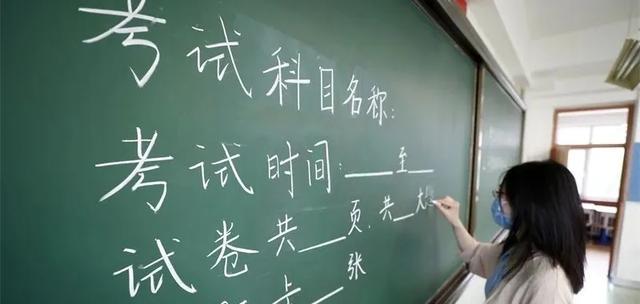 考试科目名称：
考试时间：___至___
试卷共___页，共___大
卡___张